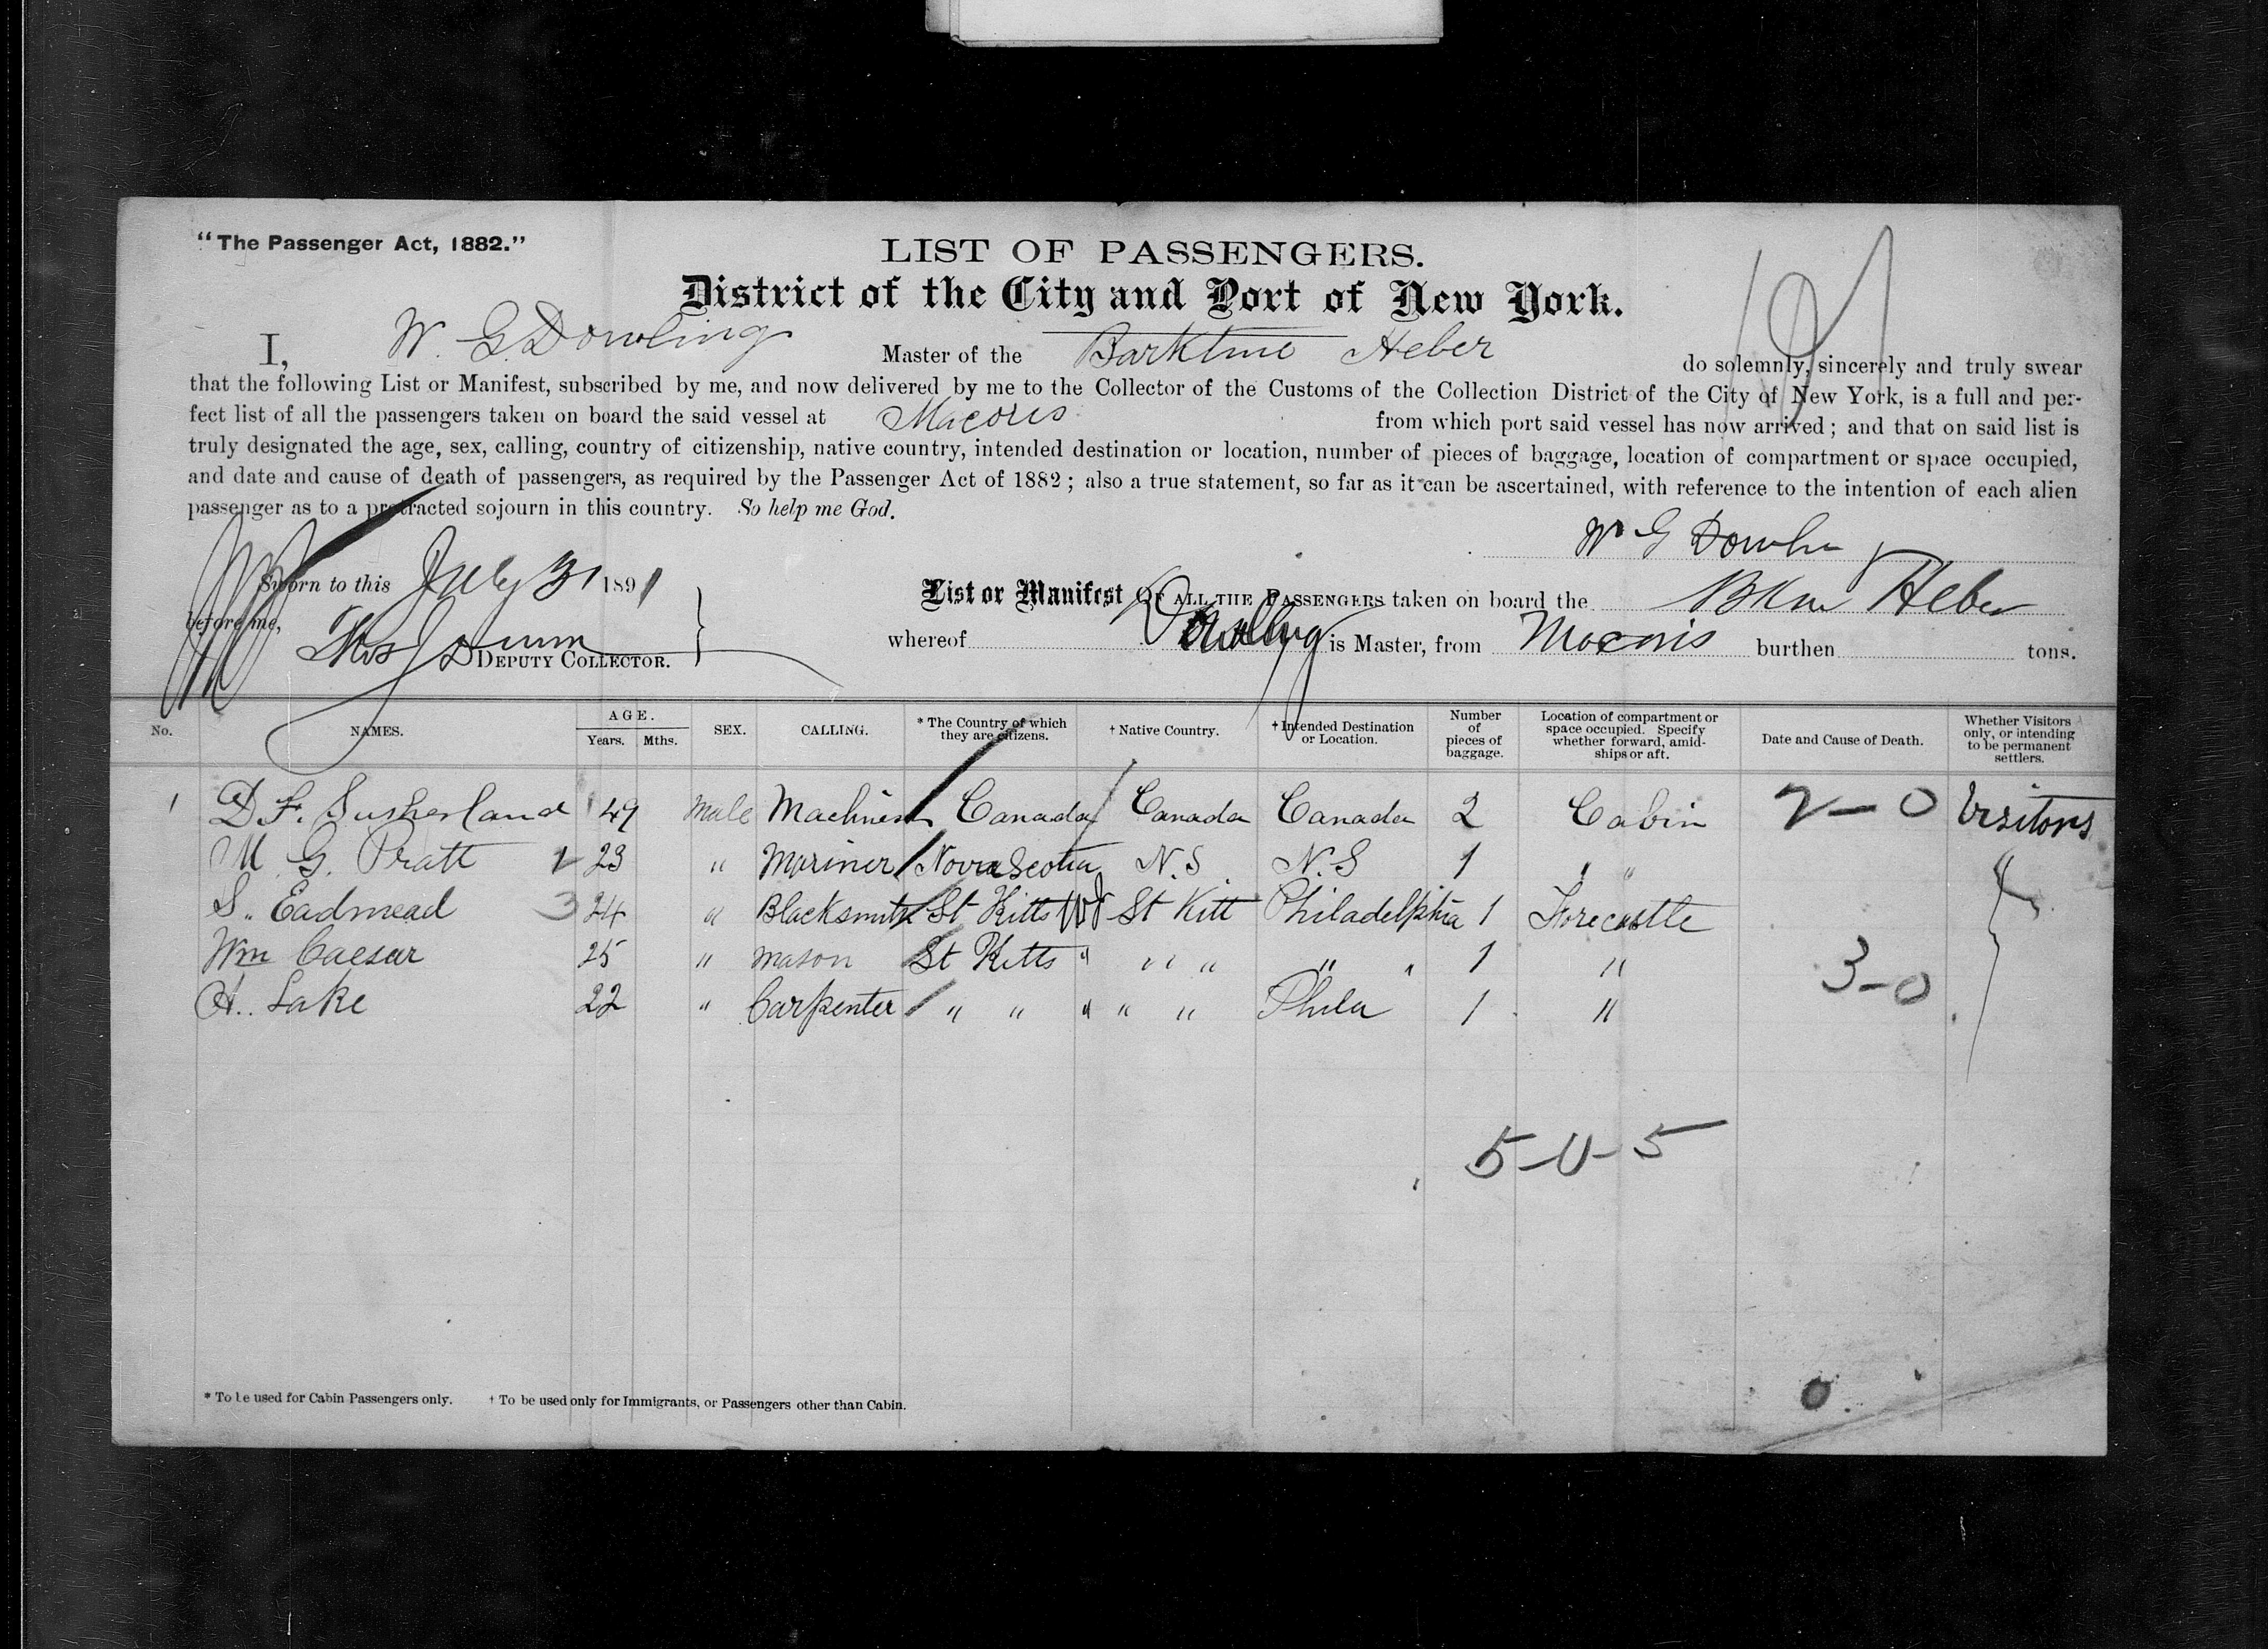 "The Passenger Act, 1882."
LIST OF PASSENGERS.
District of the City and Port of New York.
I, W. G. Dowling Master of the Barktine Heber do solemnly, sincerely and truly swear
that the following List or Manifest, subscribed by me, and now delivered by me to the Collector of the Customs of the Collection District of the City of New York, is a full and per-
fect list of all the passengers taken on board the said vessel at Macoris from which port said vessel has now arrived; and that on said list is
truly designated the age, sex, calling, country of citizenship, native country, intended destination or location, number of pieces of baggage, location of compartment or space occupied,
and date and cause of death of passengers, as required by the Passenger Act of 1882; also a true statement, so far as it can be ascertained, with reference to the intention of each alien
passenger as to a protracted sojourn in this country. So help me God.
W G Dowling
Sworn to this July 31 1891
before me,
DEPUTY COLLECTOR.
List or Manifest OF ALL THE PASSENGERS taken on board the Bktn Heber
whereof Dowling is Master, from Macoris burthen tons.
No. NAMES. AGE. Years. Mths. SEX. CALLING. * The Country of which they are citizens. † Native Country. † Intended Destination or Location. Number of pieces of baggage. Location of compartment or space occupied. Specify whether forward, amid-ships or aft. Date and Cause of Death. Whether Visitors only, or intending to be permanent settlers.
1 D. F. Sutherland 49 Male Machinest Canada Canada Canada 2 Cabin 2-0 Visitors
M. G. Pratt 2 23 " Mariner Nova Scotia N.S. N.S 1 " "
S. Eadmead 3 24 " Blacksmith St Kitts St Kitt Philadelphia 1 Forecastle
Wm Caesar 25 " Mason St Kitts " " " " " 1 "
3-0
H. Lake 22 " Carpenter " " " " " Phila 1 "
5-0-5
* To be used for Cabin Passengers only. † To be used only for Immigrants, or Passengers other than Cabin.